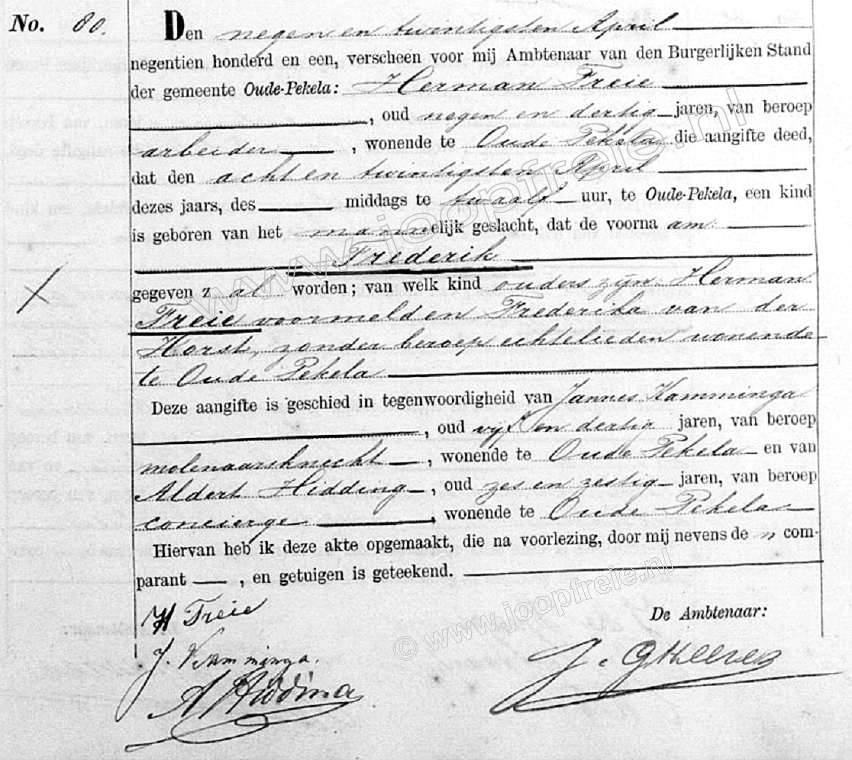 No. 80. Den negen en twintigsten April
negentien honderd en een, verscheen voor mij Ambtenaar van den Burgerlijken Stand
der gemeente Oude-Pekela: Herman Freie
, oud negen en dertig jaren, van beroep
arbeider, wonende te Oude Pekela die aangifte deed,
dat den acht en twintigsten April
dezes jaars, des middags te twaalf uur, te Oude-Pekela, een kind
is geboren van het mannelijk geslacht, dat de voorna am
Frederik
gegeven z al worden; van welk kind ouders zijn Herman
Freie voormeld en Frederika van der
Horst, zonder beroep echtelieden wonende
te Oude Pekela
Deze aangifte is geschied in tegenwoordigheid van Jannes Kamminga
, oud vijf en dertig jaren, van beroep
molenaarsknecht, wonende te Oude Pekela en van
Aldert Hidding, oud zes en zestig jaren, van beroep
concierge, wonende te Oude Pekela
Hiervan heb ik deze akte opgemaakt, die na voorlezing, door mij nevens de n com-
parant, en getuigen is geteekend.
H Freie
De Ambtenaar:
J. Kamminga.
A Hidding
© www.joopfreie.nl